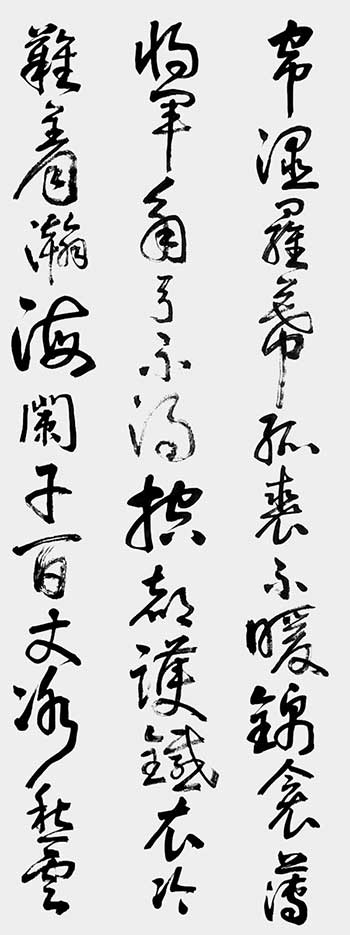 帘濕羅幕狐裘不暖錦衾薄
將軍角弓不得控都護鐵衣冷
難着瀚海闌干百丈冰愁雲